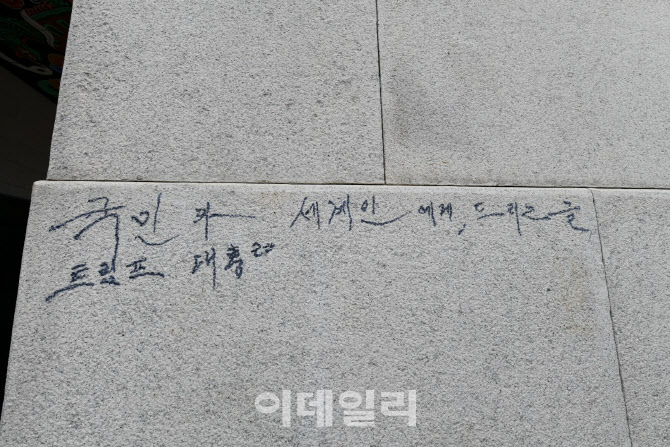 국민과 세계인에게, 드리는 글
트럼프 대통령
이데일리